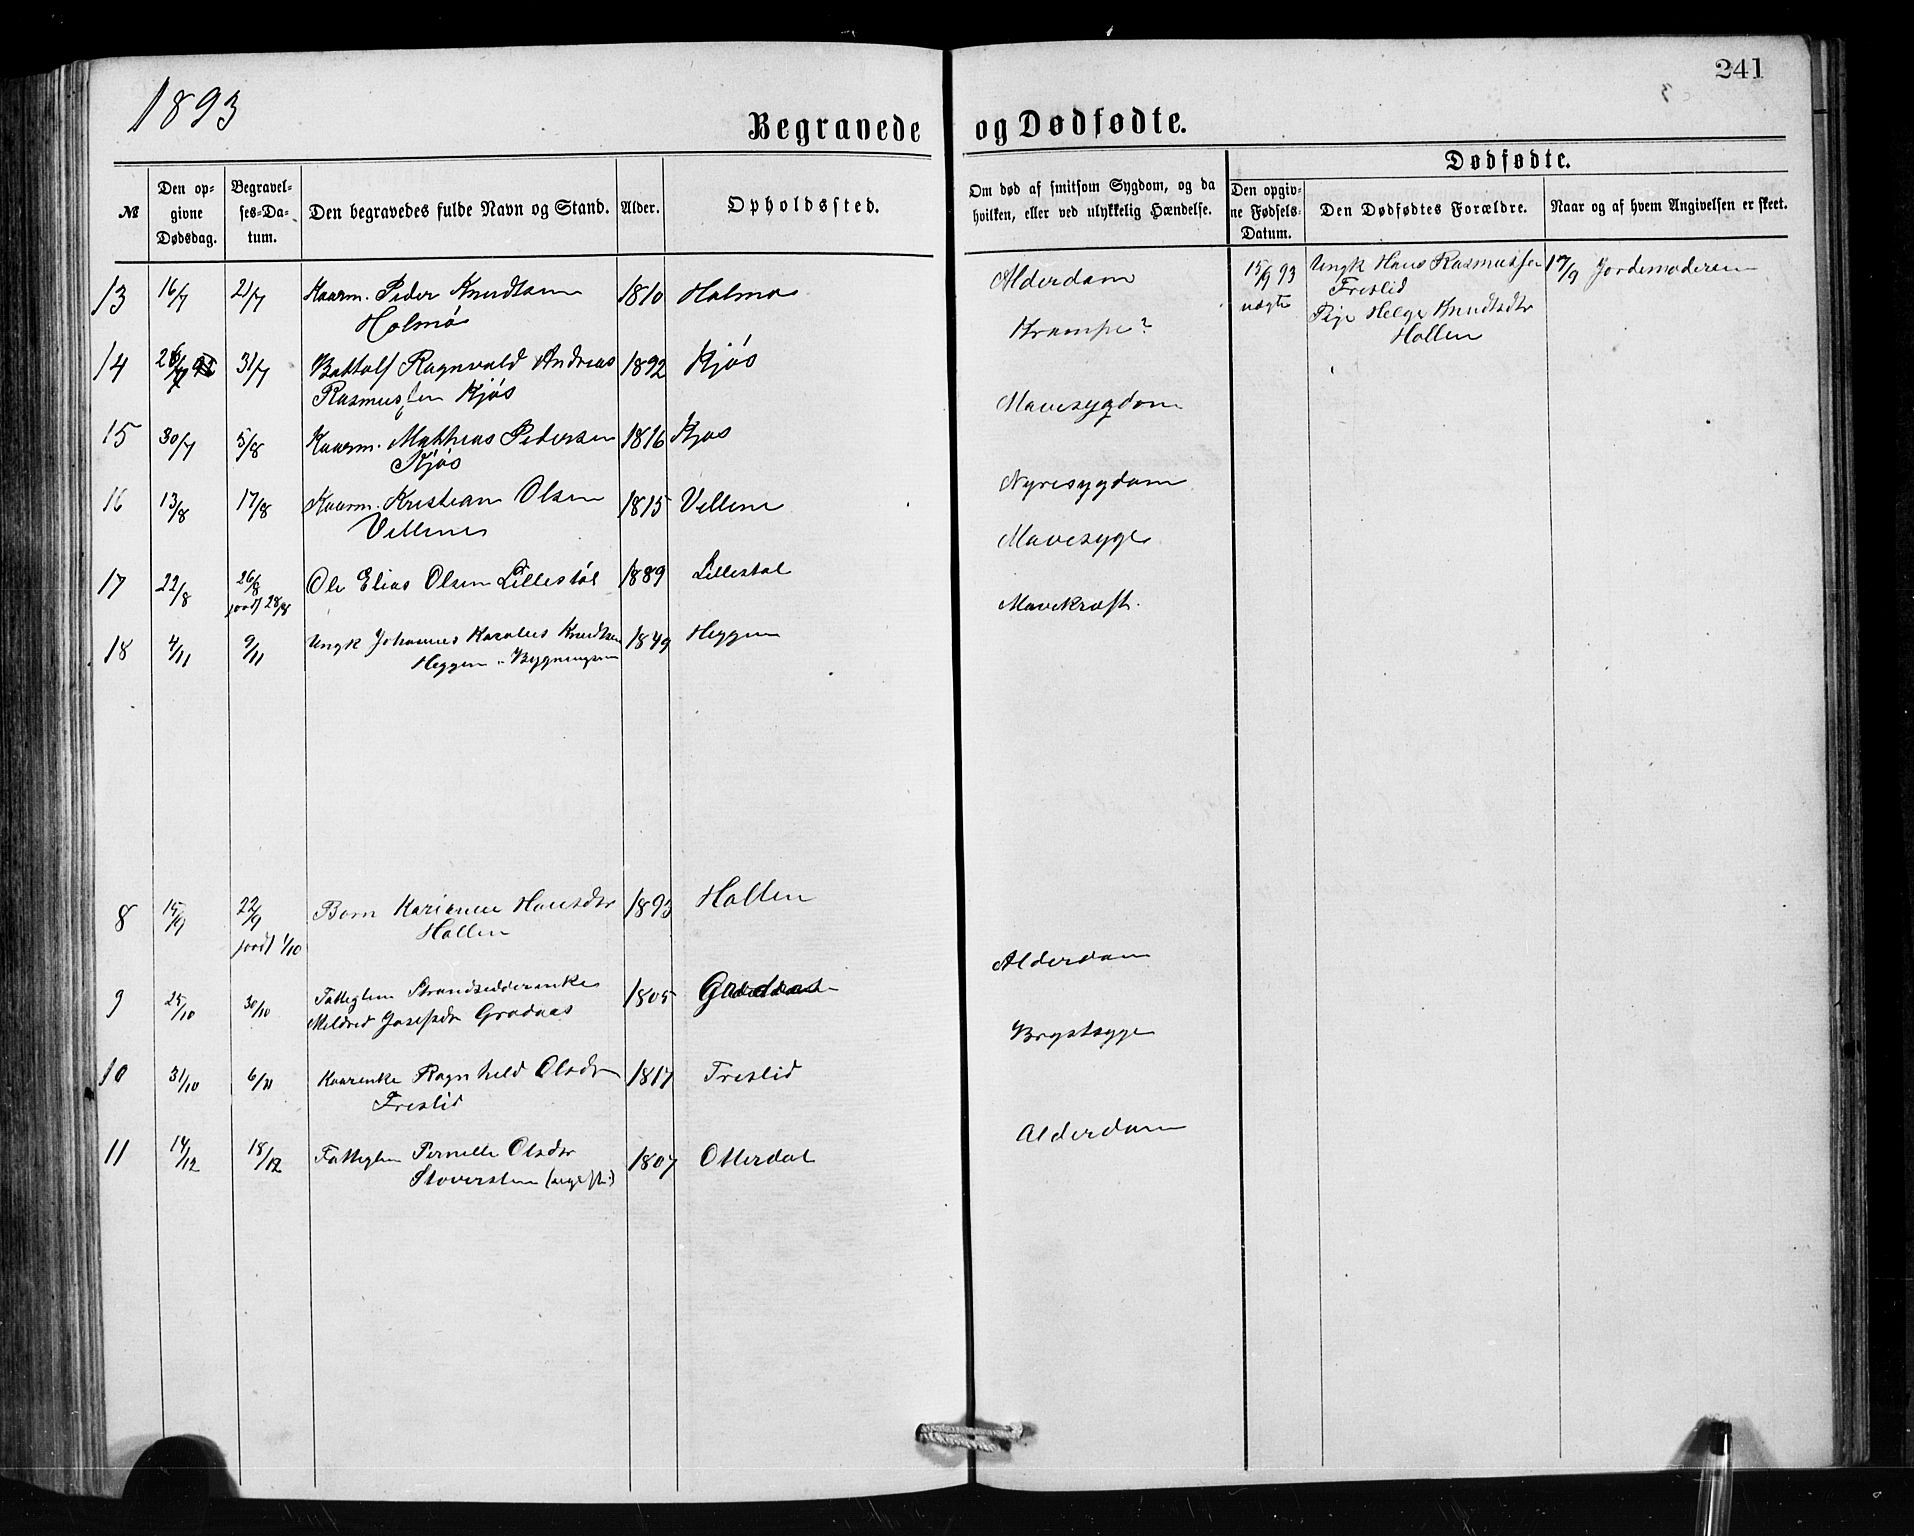 1893
241
Begravede og Dødfødte.
№
Den opgivne Dødsdag.
Begravelses-Datum.
Den begravedes fulde Navn og Stand.
Alder.
Opholdssted.
Om død af smitsom Sygdom, og da hvilken, eller ved ulykkelig Hændelse.
Dødfødte.
Den opgivne Fødsels-Datum.
Den Dødfødtes Forældre.
Naar og af hvem Angivelsen er skeet.
13 16/7 21/7 Kaarm. Peder Knudtsen 1810 Holmø Alderdom
Holmø
14 26/7 31/7 Bottolf Ragnvald Andreas 1892 Kjøs Krampe?
Rasmussen Kjøs
15 30/7 5/8 Kaarm. Mathias Pedersen 1816 Kjøs Mavesygdom
Kjøs
16 13/8 17/8 Kaarm. Kristian Olsen 1815 Vellene Nyresygdom
Vellene
17 22/8 26/8 Ole Elias Olsen Lillestøl 1889 Lillestøl Mavesyge
jordf 28/8
18 4/11 9/11 Ungk Johannes Karolus Knudtsen 1849 Heggen Mavekræft.
Heggen
15/9 93 Ungk Hans Rasmussen 17/9 Jordemoderen
Freslid
uægte Pige Helge Knudtsdtr
Hollen
8 15/9 22/9 Barn Karianne Hansdtr 1893 Hollen
jordf 1/10 Hollen
9 25/10 30/10 Fattiglem Strandsidderenke 1805 Alderdom
Mildrid Josefsdr Grodaas
10 31/10 6/11 Kaarenke Ragnhild Olsdr 1817 Freslid Brystsyge
Freslid
11 14/12 18/12 Fattiglem Pernille Olsdtr 1807 Otterdal Alderdom
Stoversten (ugift)